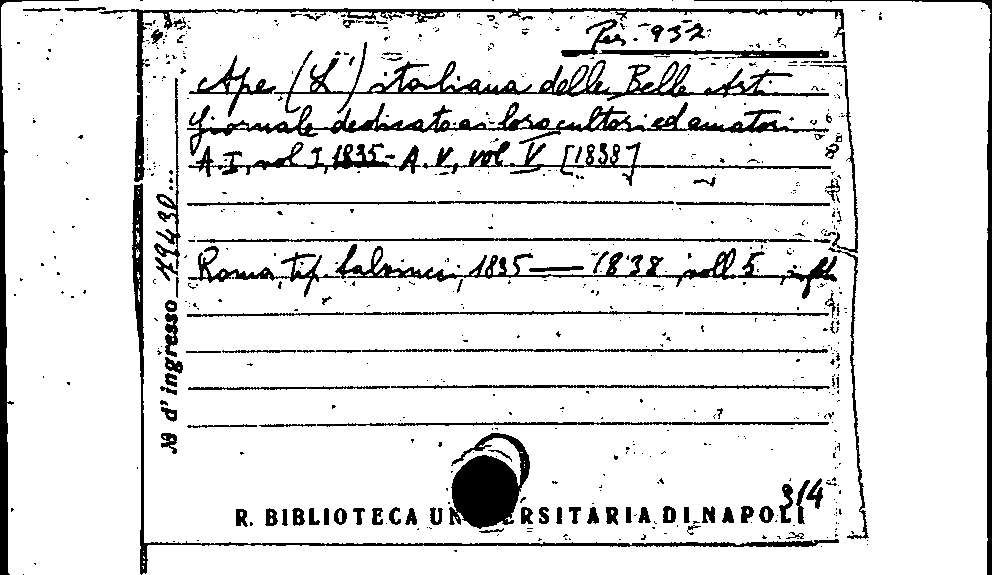 Per. 932
Ape (L') italiana delle Belle Arti
Giornale dedicato ai loro cultori ed amatori
A. I, vol I, 1835 - A. V, vol. V [1838]
Roma, Tip. Salviucci, 1835 — 1838 voll. 5
No d'ingresso
3/4
R. BIBLIOTECA UN ERSITARIA DI NAPOLI